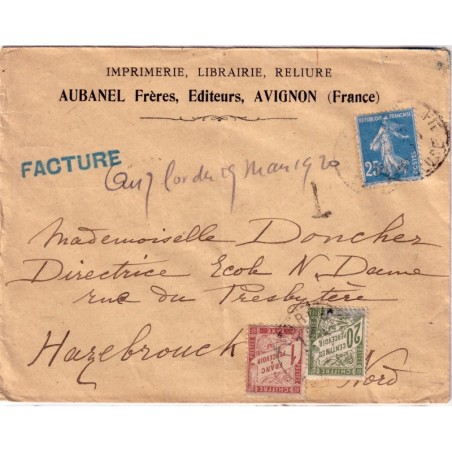 IMPRIMERIE, LIBRAIRIE, RELIURE
AUBANEL Frères, Editeurs, AVIGNON (France)
REPUBLIQUE FRANÇAISE
25
POSTES
FACTURE
du 19 Mars 1920
Mademoiselle Doncher
Directrice Ecole N. Dame
rue du Presbytère
Hazebrouck
Nord
1
FRANC
A PERCEVOIR
CHIFFRE
TAXE
20
CENTIMES
A PERCEVOIR
CHIFFRE